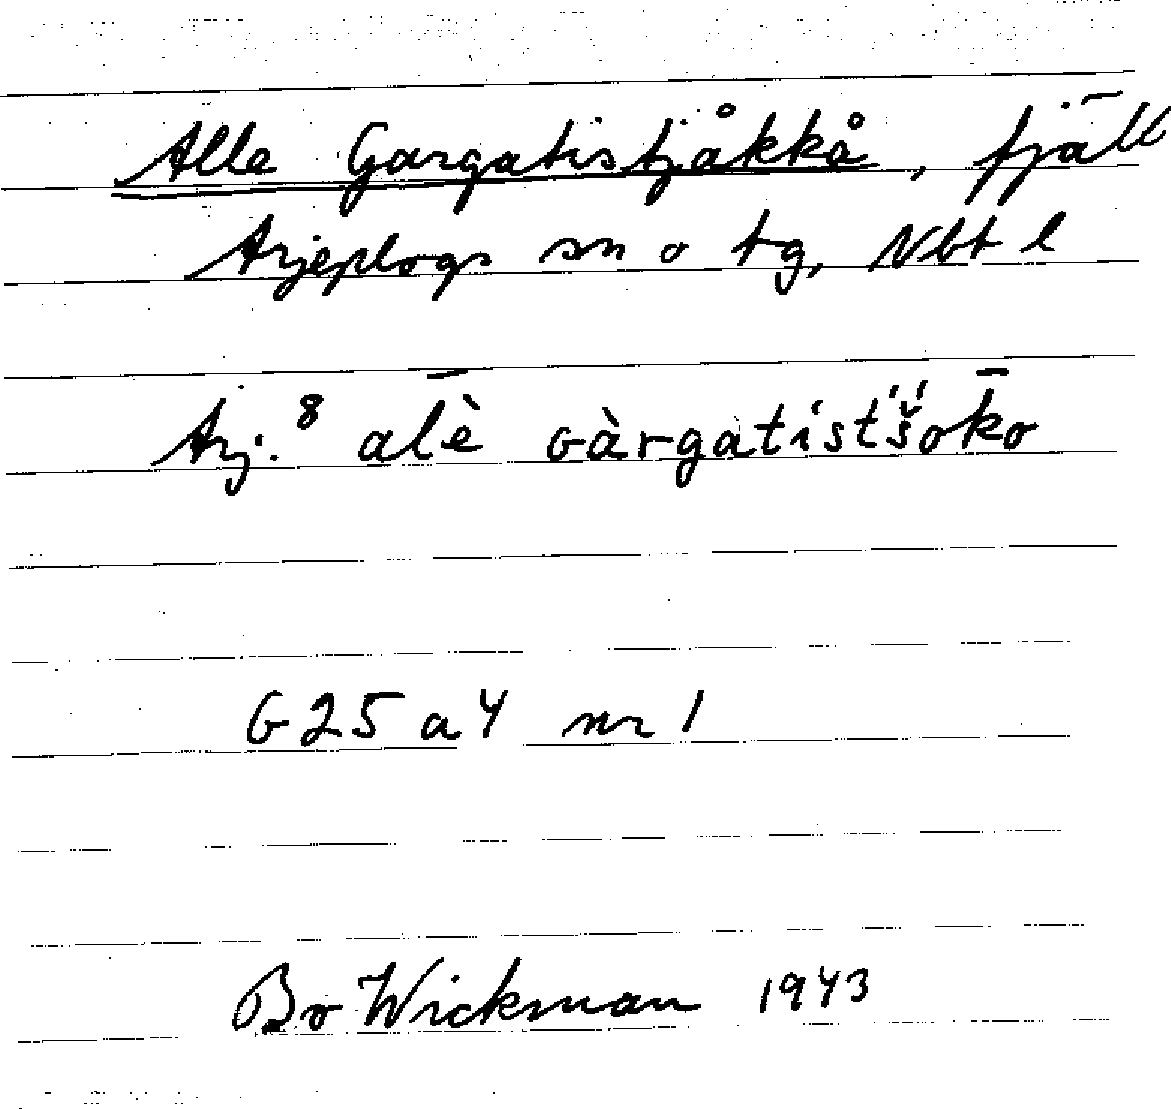 Alle Gargatistjåkkå, fjäll
Arjeplogs sn o tg, Nbt l
Arj.⁸ al̄è ɢàrgatist́š́ok̄o
G25 a 4 nr 1
Bo Wickman 1943